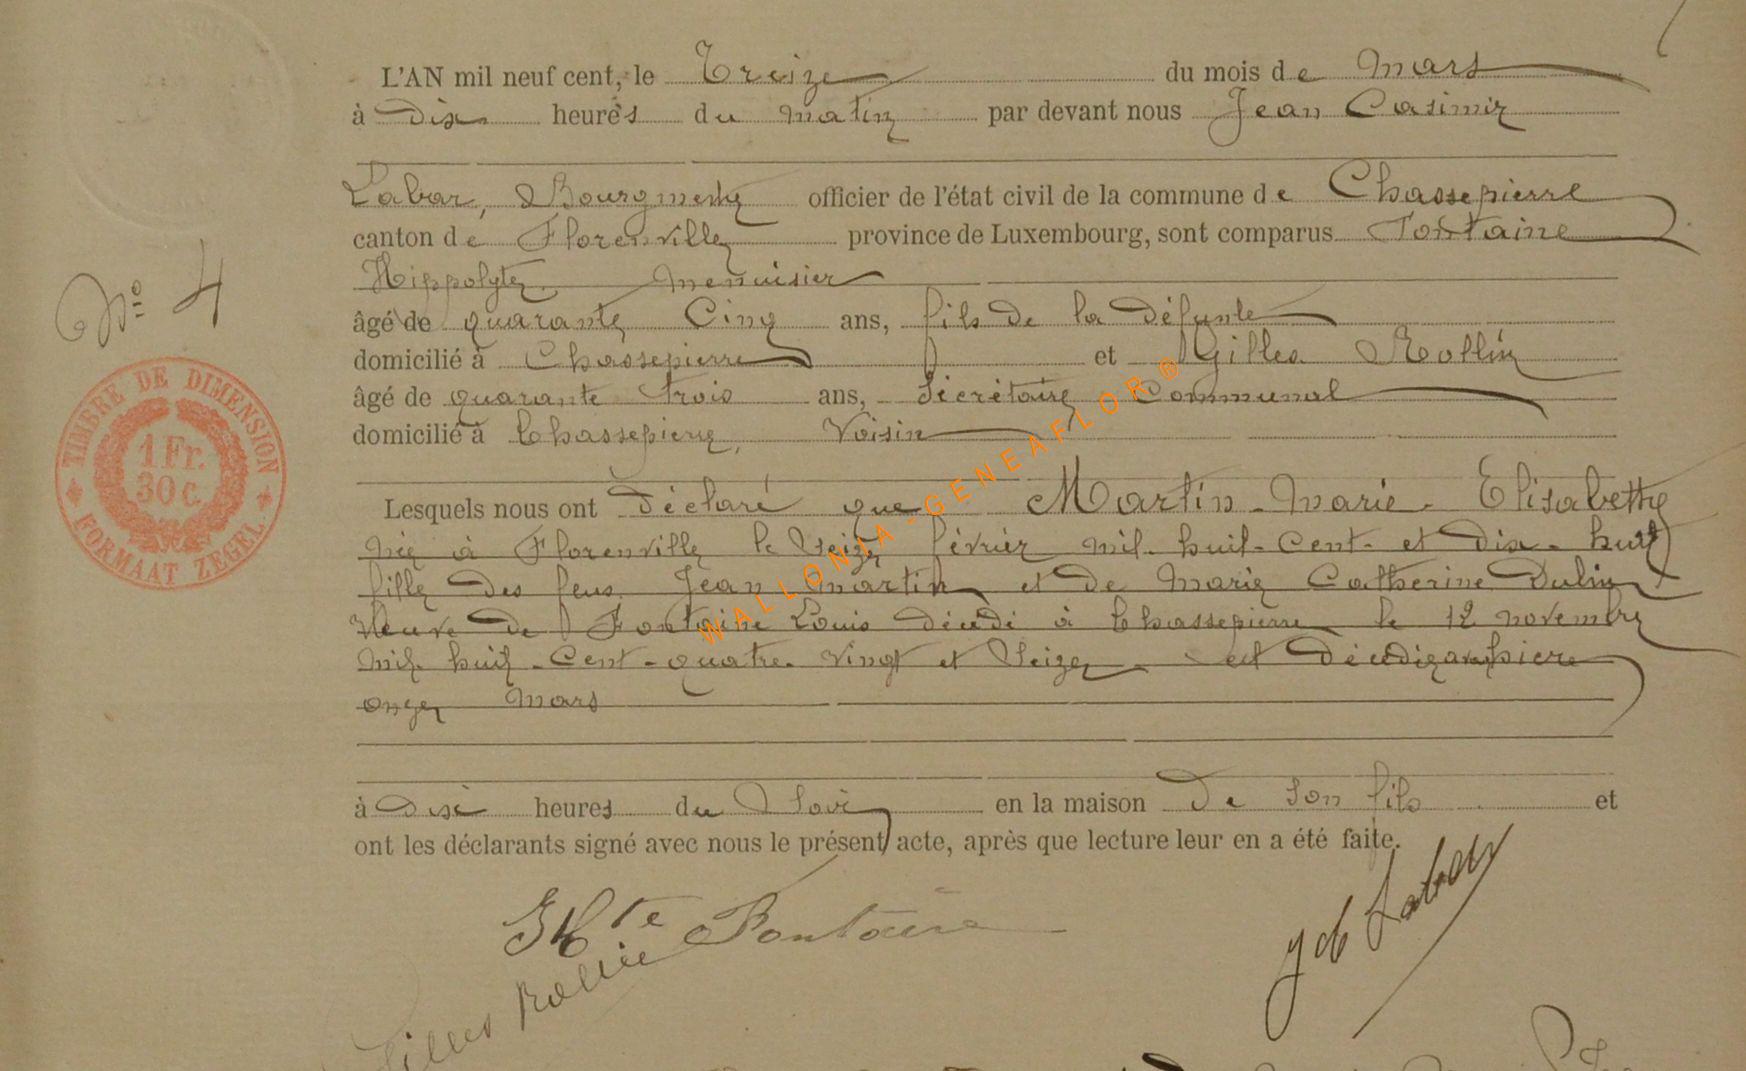 L'AN mil neuf cent, le Treize du mois de Mars
à Dix heures du matin par devant nous Jean Casimir
Labar, Bourgmestre officier de l'état civil de la commune de Chassepierre
canton de Florenville province de Luxembourg, sont comparus Fontaine
Hippolyte. Menuisier
N° 4
âgé de quarante Cinq ans, fils de la défunte
domicilié à Chassepierre et Gilles Rollin
âgé de quarante trois ans, Sécrétaire Communal
domicilié à Chassepierre, Voisin
TIMBRE DE DIMENSION
1 Fr.
30 c.
FORMAAT ZEGEL
Lesquels nous ont déclaré que Martin Marie Elisabeth
née à Florenville le Seize février mil-huit-Cent-et Dix-huit
fille des feus Jean Martin et de Marie Catherine Dulieu
Veuve de Fontaine Louis décédé à Chassepierre le 12 novembre
mil-huit-Cent-quatre-vingt et Seize est décédée avant hier
onze Mars
à dix heures du Soir en la maison de Son fils et
ont les déclarants signé avec nous le présent acte, après que lecture leur en a été faite.
WALLONIA-GENEAFLOR®
Hte Fontaine
Gilles Rollin
J C Labar